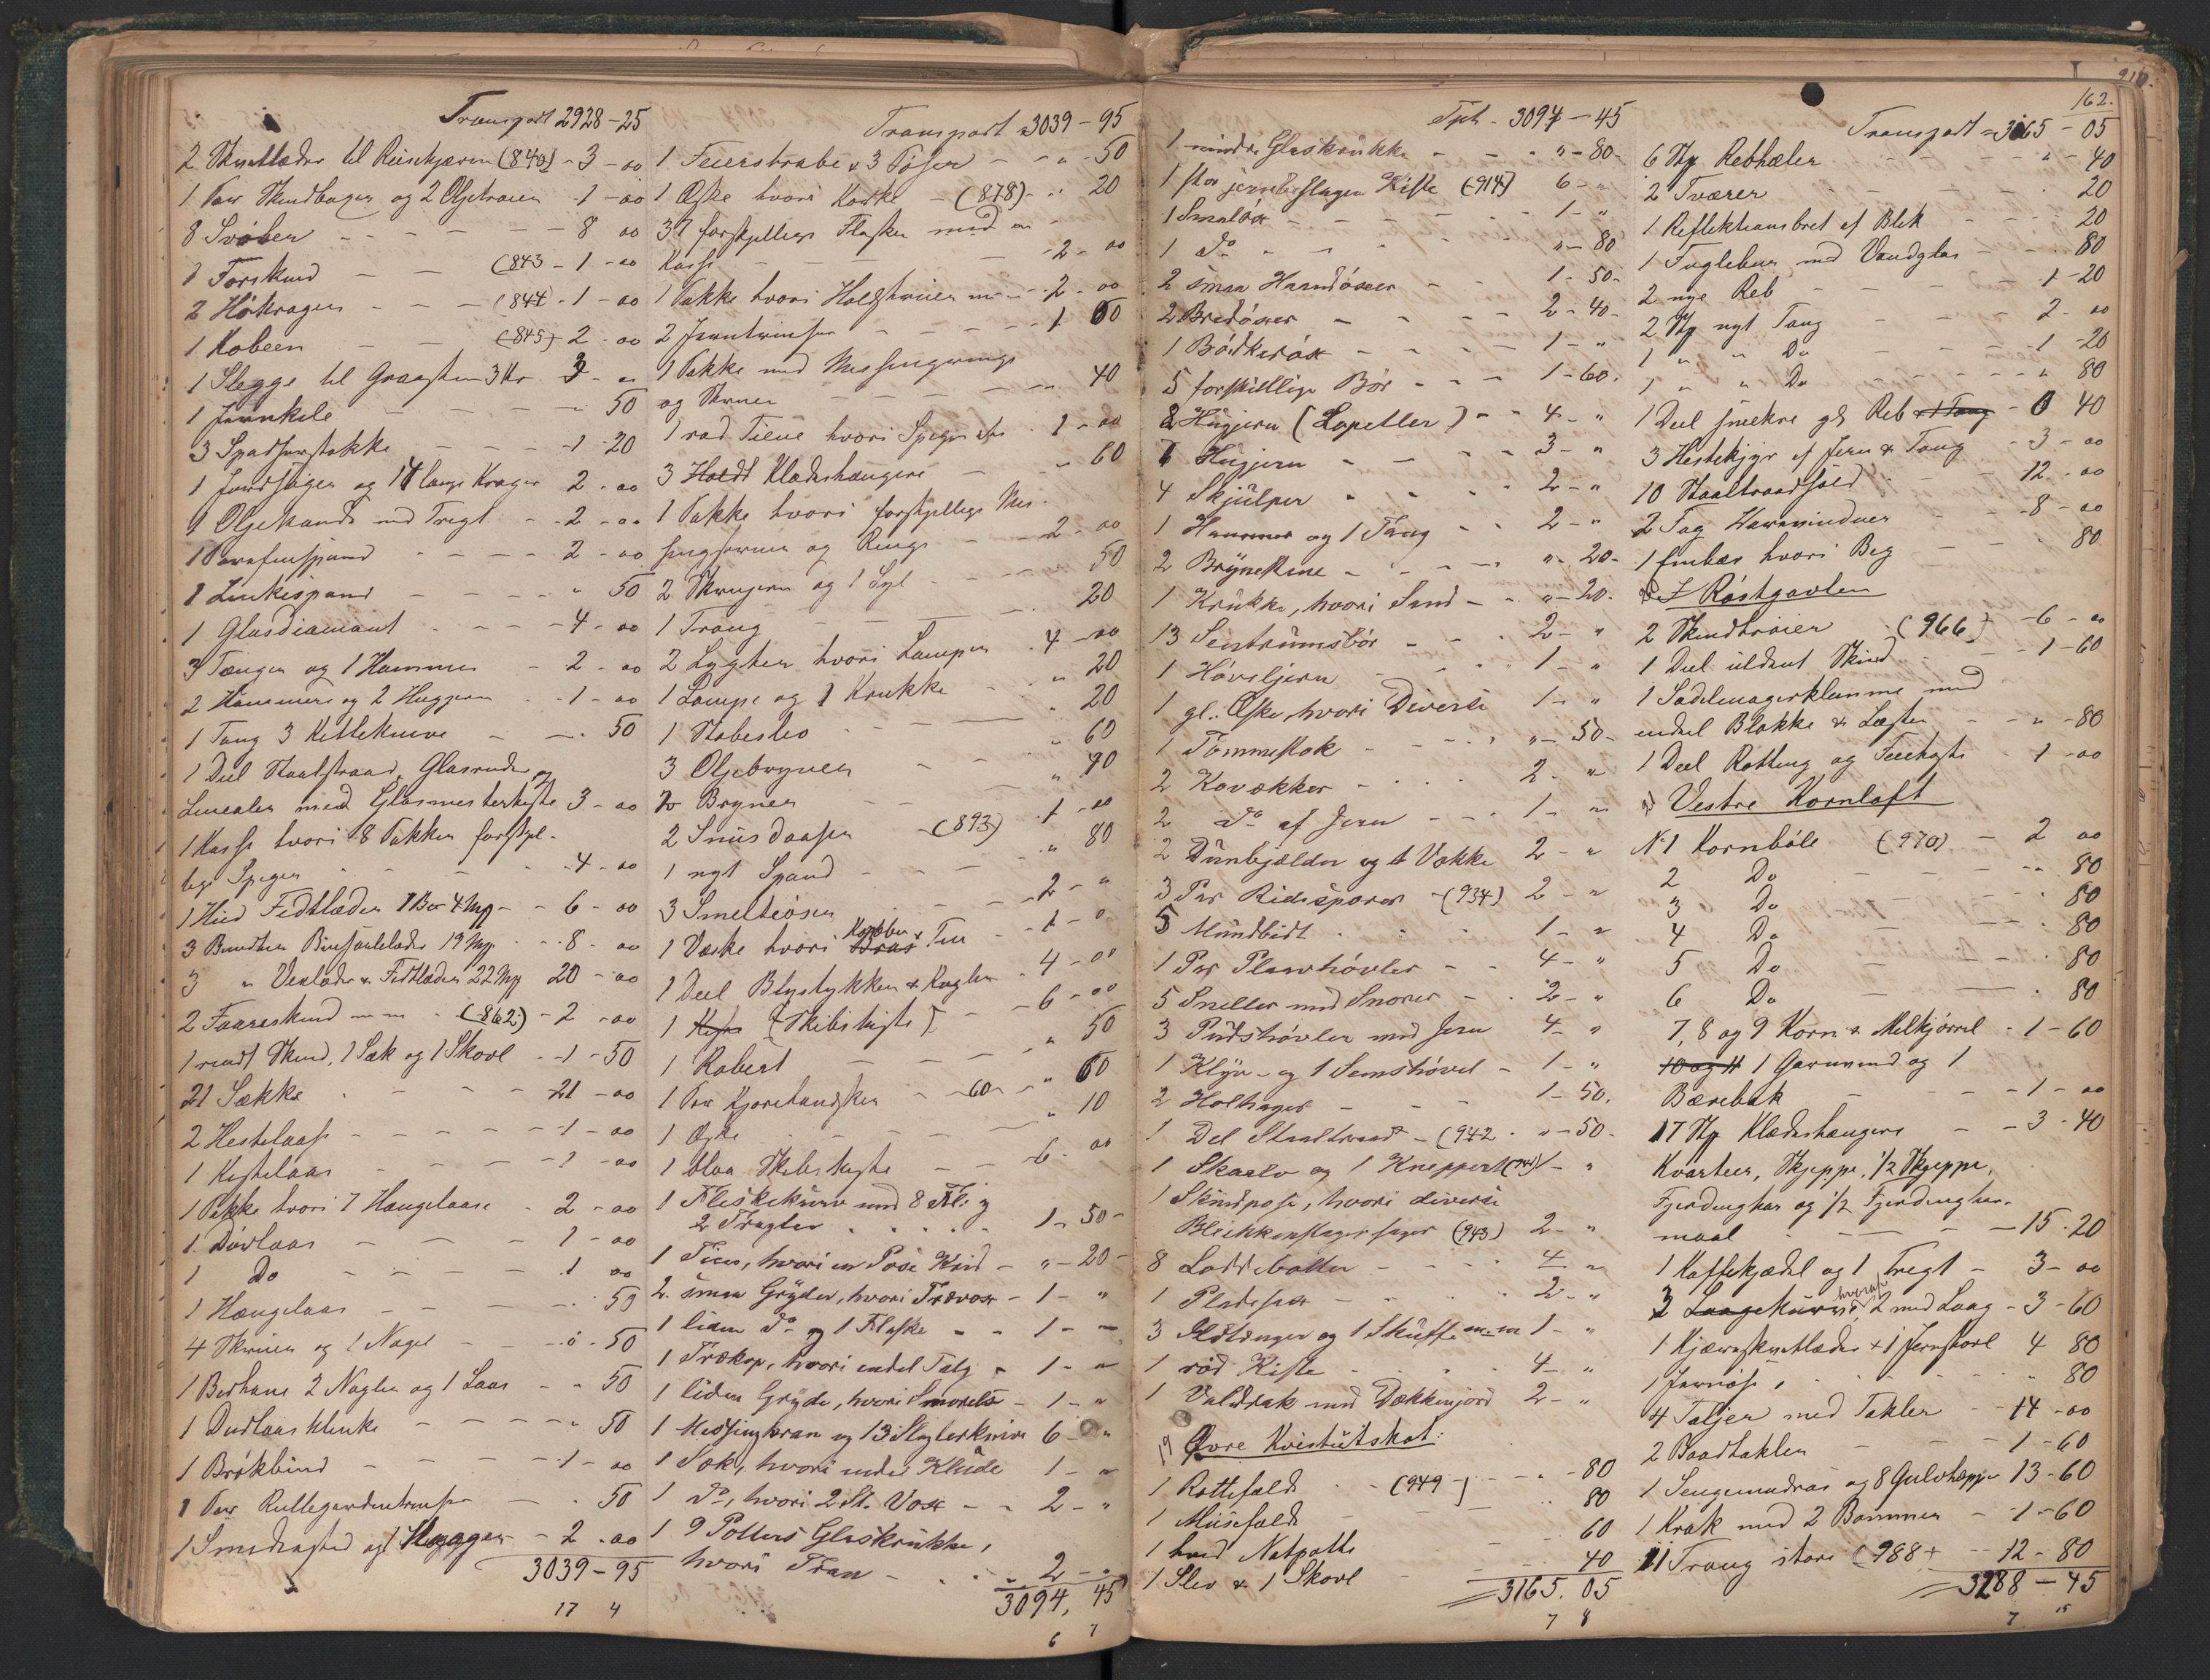 Transport 2928-25
2 Skvetlæder til Reisekjærrer (840) - 3 - 00
1 Par Skindbuxer og 2 Oljetrøier - 1 - 00
8 Svøber - 8 00
1 Forskind (843 - 1 - 00
2 Høkroger (844 - 1 - 00
1 Kobeen (845) 2 - 00
1 Slegge til Graasten 3 Kr 3 - "
1 Jernkile - 50
3 Spadserstokke - 1 - 20
1 Jordsager og 14 lange Kroger 2 - 00
1 Oljekande med Tregt - 2 - 00
1 Parafinspand - 2 - 00
1 Linkispand " 50
1 Glasdiamant - 4 - 00
3 Tænger og 1 Hammer - 2 - 00
2 Hammere og 2 Huggjern - 1 - 00
1 Tang 3 Kitteknive - 50
1 Deel Staaltraad, Glasruder og
Linealer med Glasmesterkiste 3 - 00
1 Kasse hvori 8 Pakker forskjel-
lige Spiger - 4 - 00
1 Hud Fedtlæder 1 B 4 Mp - 6 - 00
3 Bundter Bindsaalelæder 19 Mp - 8 - 00
3 " Vaxlæder & Fedtlæder 22 Mp 20 - 00
2 Faareskind m m (862) - 2 - 00
1 raadt Skind, 1 Sæk og 1 Skovl - 1 - 50
21 Sække - 21 - 00
2 Hestelaase - 1 - 00
1 Kistelaas - 1 - 00
1 Pakke hvori 7 Hængelaase - 2 - 00
1 Dørlaas - 1 - 00
1 Do - 1 00
1 Hængelaas - 50
4 Skruer og 1 Nagel - 50
1 Berhane 2 Nagler og 1 Laas - 50
1 Dørlaasklinke - 50
1 Brøkbind - 1 - 00
1 Par Rullegardintrinser - 50
1 Smedragted og 1 Knager - 2 - 00
3039-95
17 4
Transport 3039-95
1 Feierskrabe & 3 Poser - " - 50
1 Æske hvori Korke - (878) - " 20
37 forskjellige Flasker med en
Kasse - 2 - 00
1 Pakke hvori Holzskruer m m - 2 - 00
2 Jerntrinser - 1 60
1 Pakke med Messingringe
og Skruer - " 40
1 rød Tiene hvori Spiger etc - 1 - 00
3 Klædeshængere - " 60
1 Pakke hvori forskjellige Mes-
singskruer og Ringe - 2 - 00
2 Skrujern og 1 Syl - 50
1 Traug - 20
2 Lygter hvori Lamper - 4 - 00
1 Lampe og 1 Krukke - " 20
1 Støbeslev - " 20
3 Oljebryner - " 60
2 Bryner - " 40
2 Snusdaaser - (893) 1 - 00
1 nyt Spand - " 80
3 Smelteøser - 2 - "
1 Væske hvori Kobber & Tin - 1 - 0
1 Deel Blystykker & Kugler - 4 - 00
1 (Skibskiste) - 6 - 00
1 Kobert - " 50
1 Par Kjørehandsker - 60 - " 60
1 Æske - " 10
1 blaa Skibskiste - 6 - 00
1 Flaskekurv med 8 Fl: og
2 Tragter - 1 - 50 -
1 Tine, hvori en Pose Krid - " - 20 -
2 smaa Gryder, hvori Trævox - 1 - "
1 liden Do og 1 Flaske - 1 - "
1 Trækop, hvori endel Talg - 1 - "
1 liden Gryde, hvori Smørelse - 1 - "
1 Messingkran og 13 Slagterknive 6 - "
1 Sæk, hvori endel Klude 1 - "
1 Do, hvori 2 St. Vox - 2 - "
1 9 Potters Glaskrukke,
hvori Tran - 2 - "
3094, 45
6 7
Tpt - 3094 - 45
1 mindre Glaskrukke - " - 80 -
1 stor jernbeslagen Kiste (914) 6 - "
1 Smaløx - 1 - "
1 Do - " - 80
2 smaa Haandøxer - 1 - 50 -
2 Bredøxer - 2 - 40 -
1 Bødkerøx - 1 - "
5 forskjellige Bør - 1 - 60 -
8 Hugjern (Lopetter) - 4 - "
6 Hugjern - 3 - "
4 Skjulper - 2 - "
1 Hammer og 1 Tang - 2 - "
2 Brynestene - " - 20 -
1 Krukke, hvori Sand - " - 20 -
13 Sentrumsbør - 2 - "
1 Høveljern - 1 - "
1 gl. Æske, hvori Diverse 1 - "
1 Tommestok - " - 50 -
2 Kovækker - 2 - "
2 Do af Jern - 1 - "
2 Dunbjælder og 4 Vække 2 - "
3 Par Ridesporer - (934) 2 - "
5 Mundbidt - 1 - "
1 Par Plovhøvler - 4 - "
5 Sneller med Snorer - 2 - "
3 Pudshøvler med Jern 4 - "
1 Klyv - og 1 Semshøvel - 1 - "
2 Holhager - 1 - 50.
1 Del Staaltraad - (942 - " - 50 -
1 Skaalv og 1 Kneppert 1 - "
1 Skindpose, hvori diverse
Blikkenslagersager (943) 2 - "
8 Loddebolter - 4 - "
1 Pladesax - 2 - "
3 Ildtænger og 1 Skuffe m m 1 - "
1 rød Kiste - 4 - "
1 Valdrak med Dækkengjord 2 - "
19 Øvre Kvistutskot:
1 Rottefælde (949) - 80
1 Musefælde - 80
1 hvid Natpotte - 60
1 Slev & 1 Skovl - 40
3165. 05
7 8
162.
Transport - 3165 - 05
6 Stp Rebhæler - " - 40
2 Tværer - 20
1 Reflektionsbret af Blik - 20
1 Fuglebur med Vandglas - 80
2 nye Reb - 1 - 20
2 Stp nyt Taug - 2 - 00
1 " " Do - 1 - 20
1 " " Do - " 80
1 Deel smekre gl. Reb & 1 Taug - 0 40
3 Hestekjyr af Jern & Taug - 3 - 00
10 Staaltraadsold - 12 - 00
2 Fag Havevinduer - 8 - 00
1 Embær hvori Beg - 80
I Røstgavlen
2 Skindtrøier (966) - 6 - 00
1 Deel uldent Skind - 1 - 60
1 Sadelmagerklemme med
endeel Blokke & Læster - " - 80
1 Deel Rotting og Feiekoste - 1 - 00
Vestre Kornloft
No 1 Kornbøle (970) - 2 00
2 Do - 80
3 Do - 80
4 Do - 80
5 Do - 80
6 Do - 80
7, 8 og 9 Korn & Melkjørrel - 1 - 60
10 og 11 1 Garnvind og 1
Bærebak - 1 - 00
17 Stp Klædeshængere - 3 - 40
Kvarteer, Skjeppe, 1/2 Skjeppe,
Fjerdingkar og 1/2 Fjerdingkar-
maal - 15 - 20
1 Kaffekjædel og 1 Tregt - 3 - 00
3 Laagekurve, hvoraf 2 med Laag - 3 - 60
1 Kjærreskvetlæder & 1 Jernskovl 4 80
1 Jernøse, " 80
4 Taljer med Takler - 14 - 00
2 Baadtakler - 1 - 60
1 Sengemadras og 8 Gulvtæpper 13 - 60
1 Krak med 2 Bommer - 1 - 60
11 Traug store (988 + - 12 - 80
3288 - 45
7 15